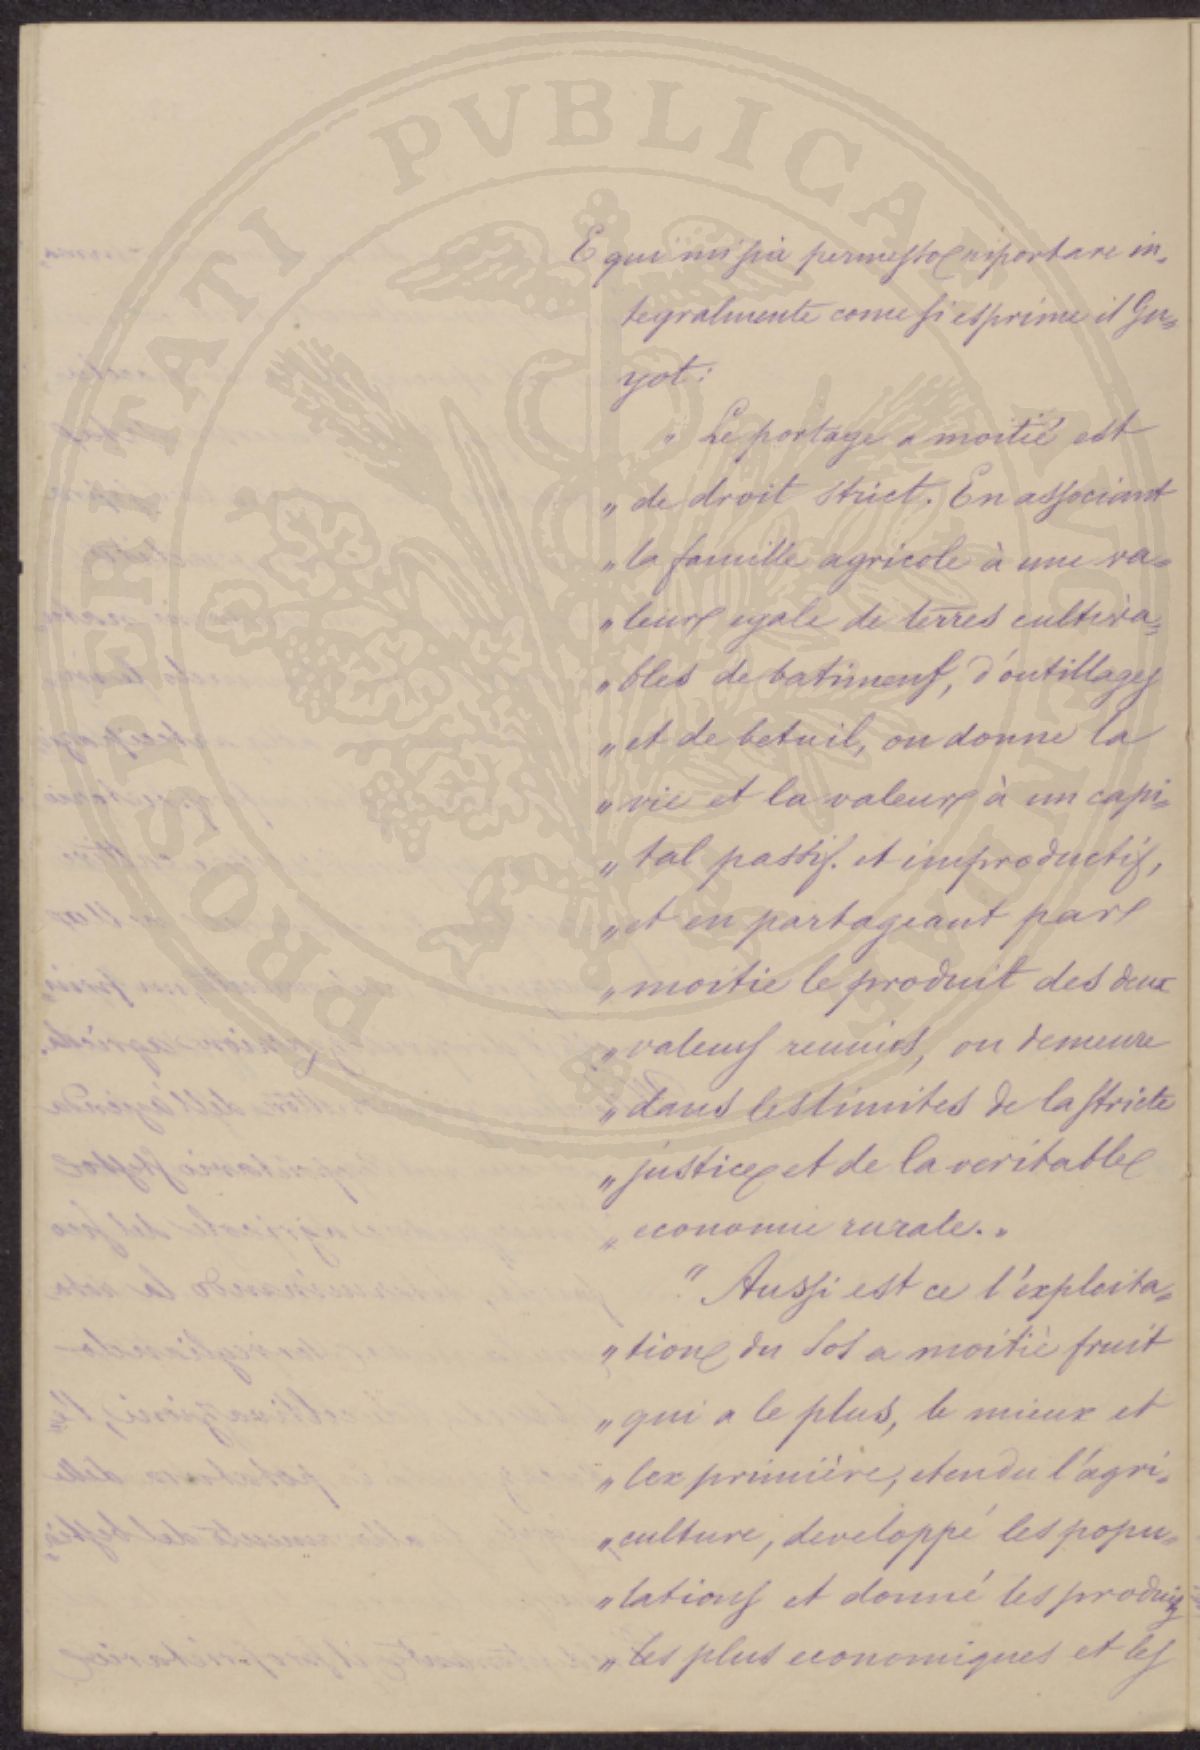 PROSPERITATI PVBLICAE
E qui mi sia permesso riportare in=
tegralmente come si esprime il Gu=
yot:
" Le portage a moitié est
" de droit strict. En associant
" la famille agricole à une va=
" leur egale de terres cultiva=
" bles de batiments, d'outillages
" et de betail, on donne la
" vie et la valeur à un capi=
" tal passif. et improductif,
" et en partageant par
" moitie le produit des deux
" valeurs reunies, on demeure
" dans les limites de la stricte
" justice et de la veritable
" economie rurale. "
" Aussi est ce l'exploita=
" tion du sol a moitiè fruit
" qui a le plus, le mieux et
" lex primière, etendu l'agri=
" culture, developpé les popu=
" lations et donné les produits
" les plus economiques et les